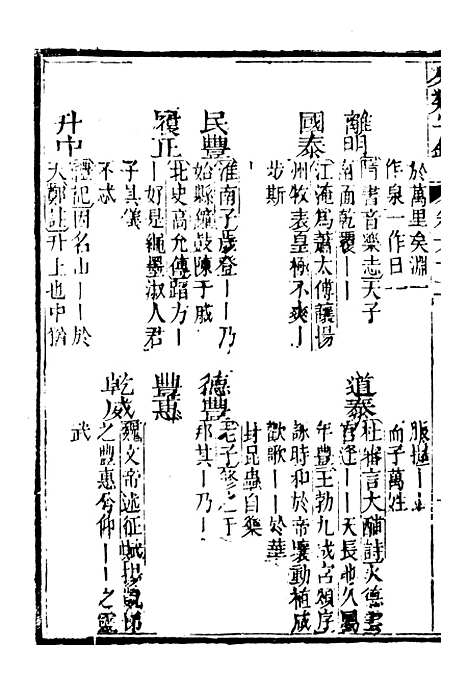 於萬里矣淵一
作泉一作日一
離明
隋書音樂志天子
南面乾覆一一
國泰
江淹為蕭太傅讓揚
州牧表皇極不爽一
步斯
民豐
淮南子歲登一一乃
始縣鐘鼓陳干戚
履正
北史高允傳蹈方一
一好是繩墨淑人君
子其儀
不忒
升中
禮記因名山一一於
天鄭註升上也中猶
而子萬姓
道泰
杜審言大酺詩火德雲
官逢一一天長地久屬
年豐王勃九成宮頌序
詠時和於帝壤動植咸
歡歌一一於華
封昆蟲自樂
德豐
老子修之于
邦其一乃一
豐惠
乾威
魏文帝述征賦揚凱悌
之豐惠兮仰一一之靈
武